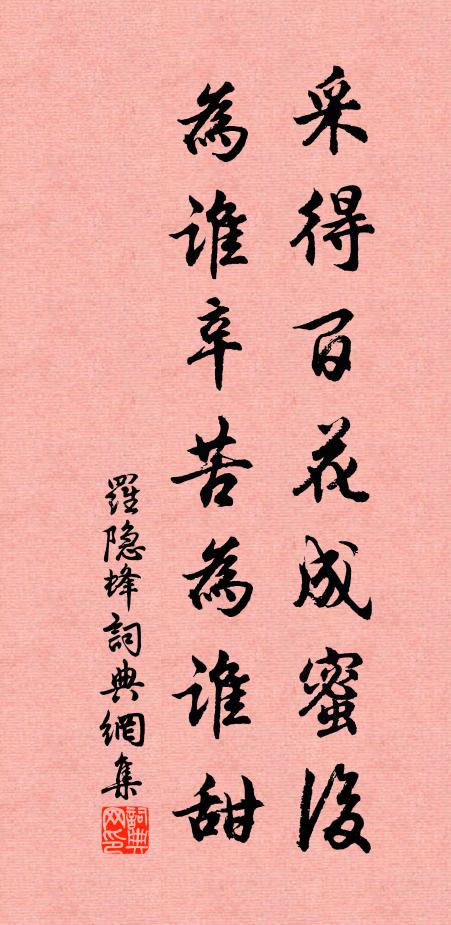 采得百花成蜜後
為誰辛苦為誰甜
羅隐蜂詞典網集
詞典网印